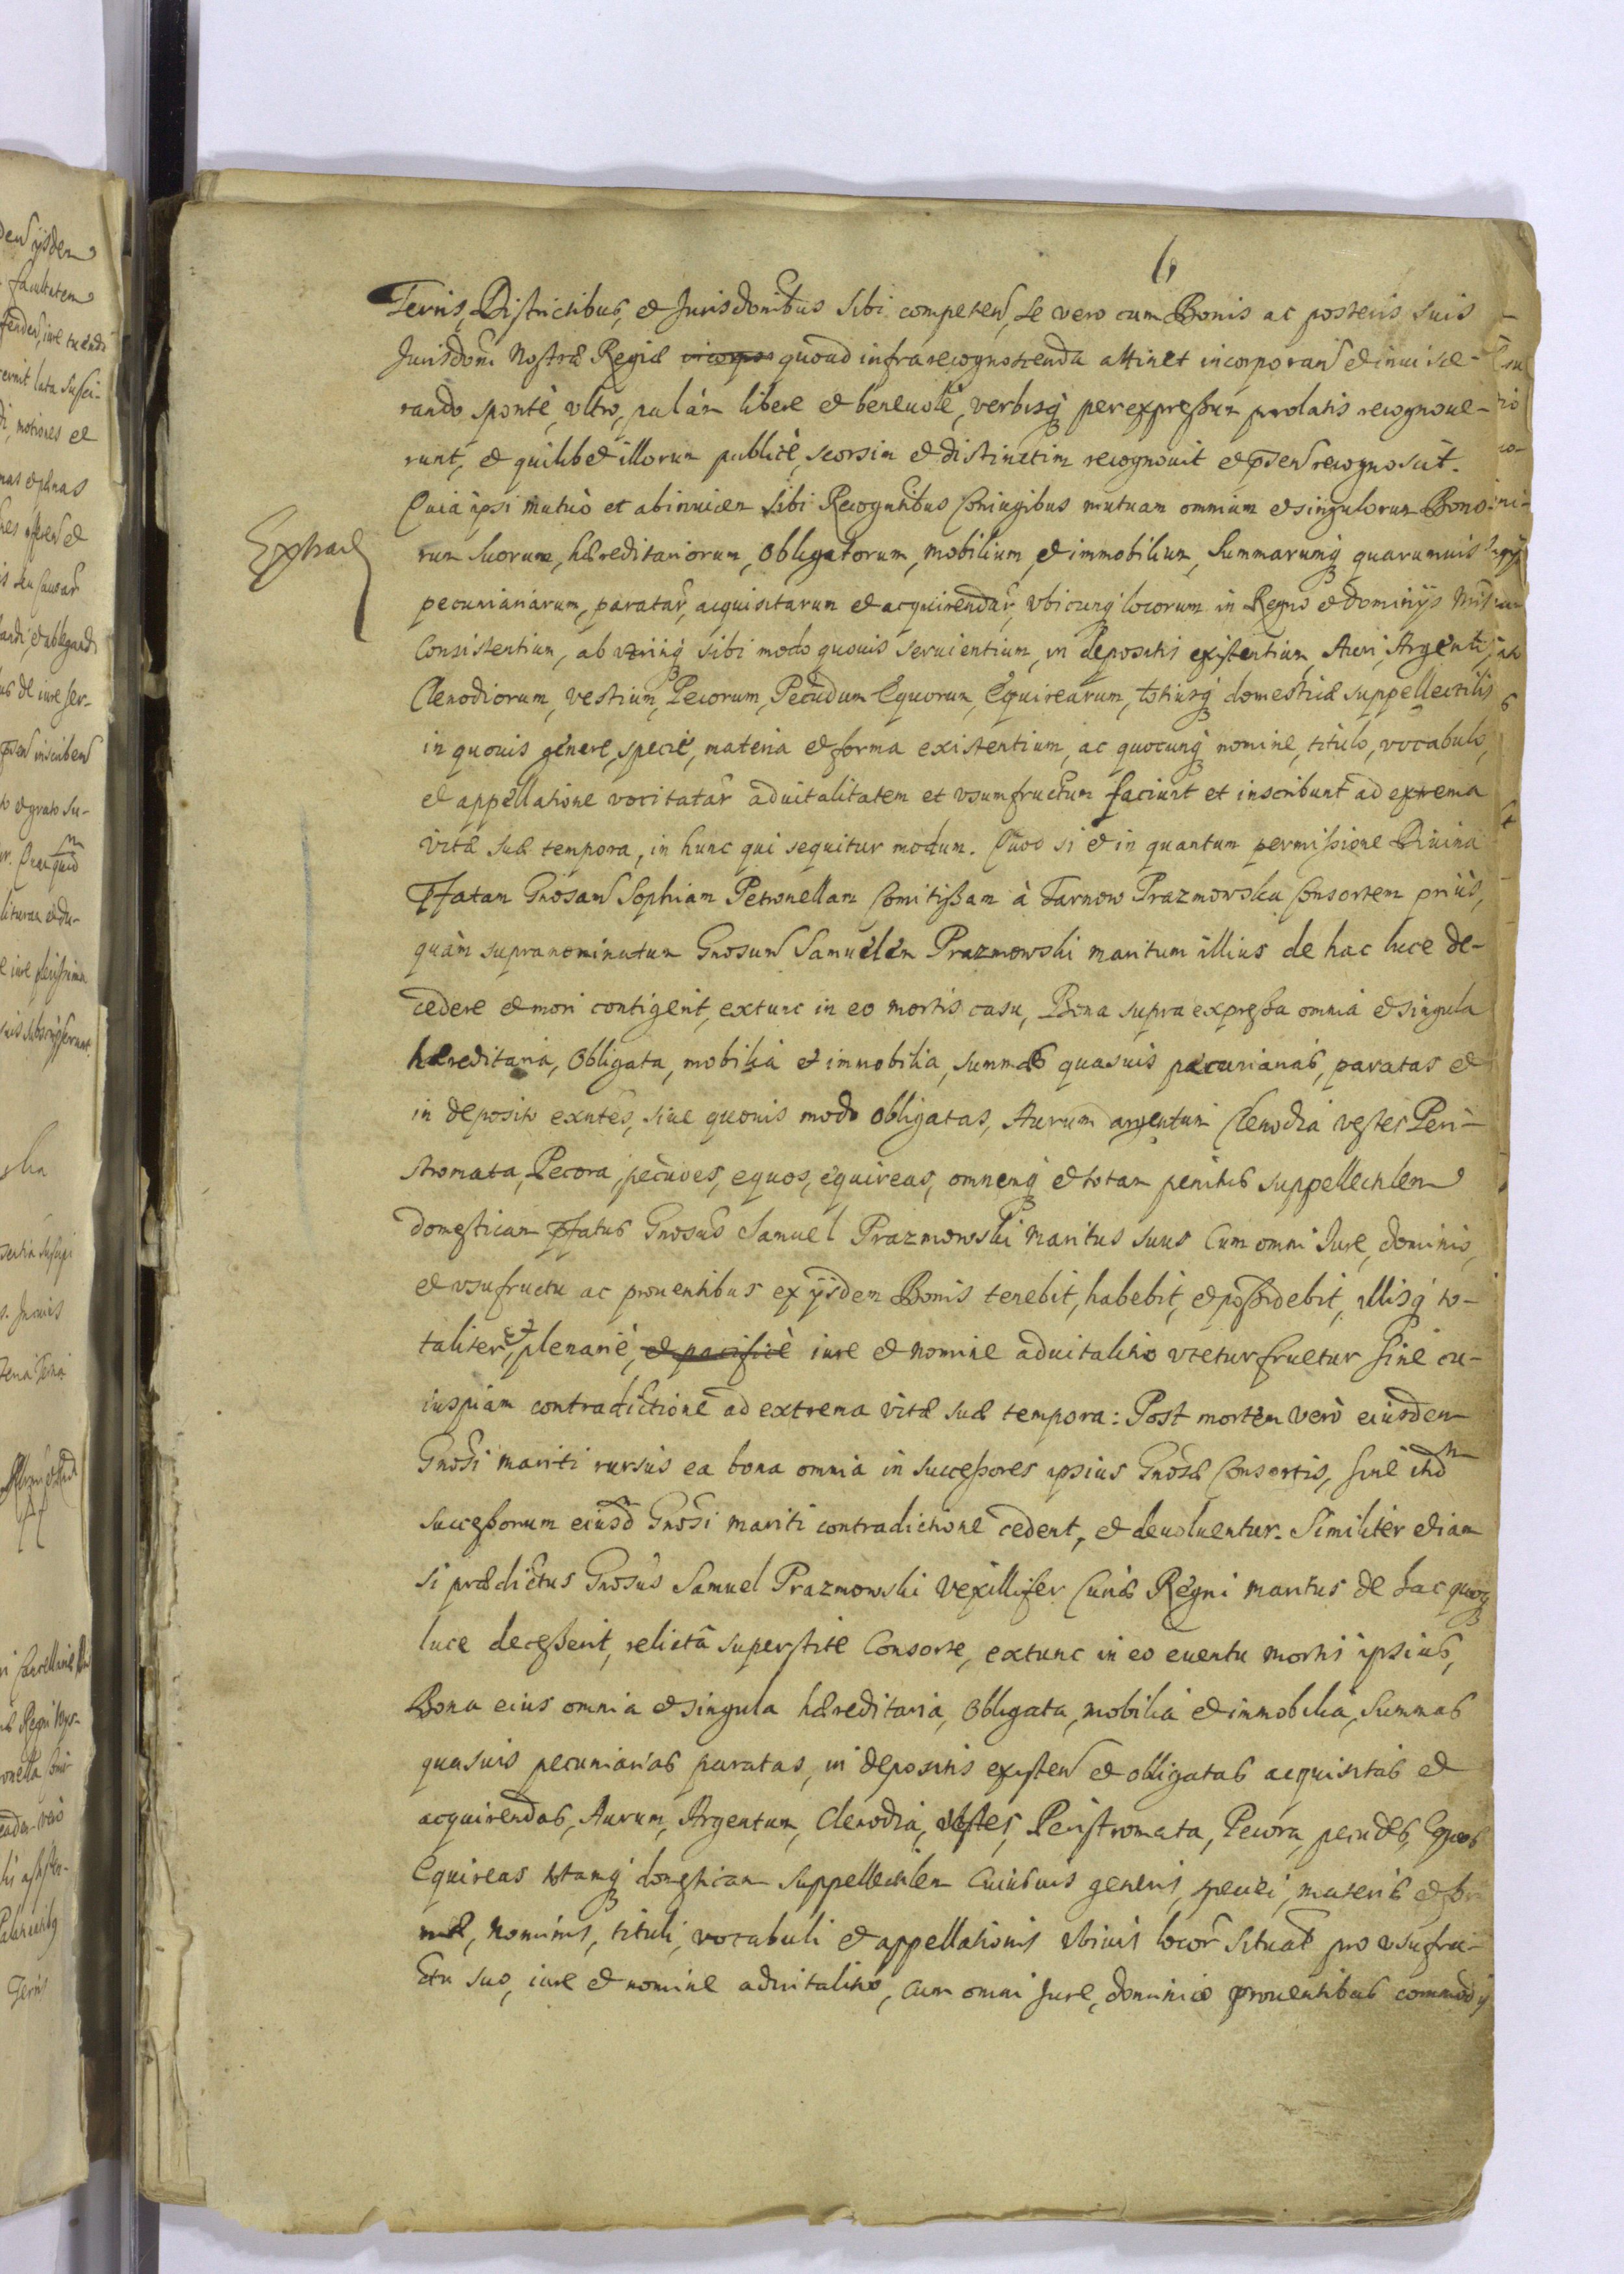 6
Terris, Districtibus, et Jurisdonibus sibi competen, se vero cum Bonis ac posteris suis
Jurisdoni Nostræ Regiæ quoad infrarecognoscenda attinet incorporan et inuisce-
rando sponte, vltro, palàm libere et beneuole, verbisq per expressum prolatis recognoue-
runt, et quilibet illorum publicè, seorsim et distinctim recognouit et pñsen recognoscit.
Quia ipsi mutuò et abinuicem sibi Recognntibus Coniugibus mutuam omnium et singulorum Bono-
Extrad
rum suorum, hæreditariorum, obligatorum, mobilium, et immobilium, Summarumq quarumuis
pecuniariarum, paratar, acquisitarum et acquirendar, vbicunq locorum in Regno et Dominijs
Consistentium, ab sibi modo quouis seruientium, in depositis existentium, Auri, Argenti,
Clenodiorum, vestium, Pecorum, Pecudum Equorum, Equirearum, totiusq domesticæ suppellectilis
in quouis genere, specie, materia et forma existentium, ac quocunq nomine, titulo, vocabulo,
et appellatione vocitatar aduitalitatem et vsumfructum faciunt et inscribunt ad extrema
vitæ suæ tempora, in hunc qui sequitur modum. Quod si et in quantum permissione Diuina
Pfatam Gnosam Sophiam Petronellam Comitissam à Tarnow Prazmowska Consortem priùs,
quàm supranominatum Gnosum Samuelem Prazmowski maritum illius de hac luce de-
cedere et mori contigerit, extunc in eo mortis casu, Bona supra expressa omnia et singula
hæreditaria, obligata, mobilia et immobilia, summas quasuis pecuniarias, paratas et
in deposito exntes, siue quouis modo obligatas, Aurum argentum Clenodia vestes Peri-
stromata, Pecora, pecudes, equos, equireas, omnemq et totam penitus suppellectilem
domesticam Pfatus Gnosus Samuel Prazmowski Maritus suus Cum omni Iure, dominio,
et vsufructu ac prouentibus ex ijsdem Bonis tenebit, habebit, et possidebit, illisq to-
taliter, et plenariè, et pacificè iure et nomine aduitalitio vtetur fruetur sine cu-
iuspiam contradictione ad extrema vitæ suæ tempora: Post mortem verò eiusdem
Gnosi mariti rursus ea bona omnia in successores ipsius Gnosæ Consortis, sine
successorum eiusd Gnosi mariti contradictione cedent, et deuoluentur. Similiter etiam
si prædictus Gnosus Samuel Prazmowski Vexillifer Curiæ Regni maritus de hac quoq
luce decesserit, relictâ superstite Consorte, extunc in eo euentu mortis ipsius,
Bona eius omnia et singula hæreditaria, obligata, mobilia et immobilia, Summas
quasuis pecuniarias paratas, in depositis existen et obligatas acquisitas et
acquirendas, Aurum, Argentum, Clenodia, vestes, Peristromata, Pecora, pecudes, Equos
Equireas totamq domesticam suppellectilem Cuiusuis generis, speciei, materiæ et for
mæ, nominis, tituli, vocabuli et appellationis vbiuis locor situat pro vsufru-
ctu suo, iure et nomine aduitalitio, cum omni Jure, dominio prouentibus commodij